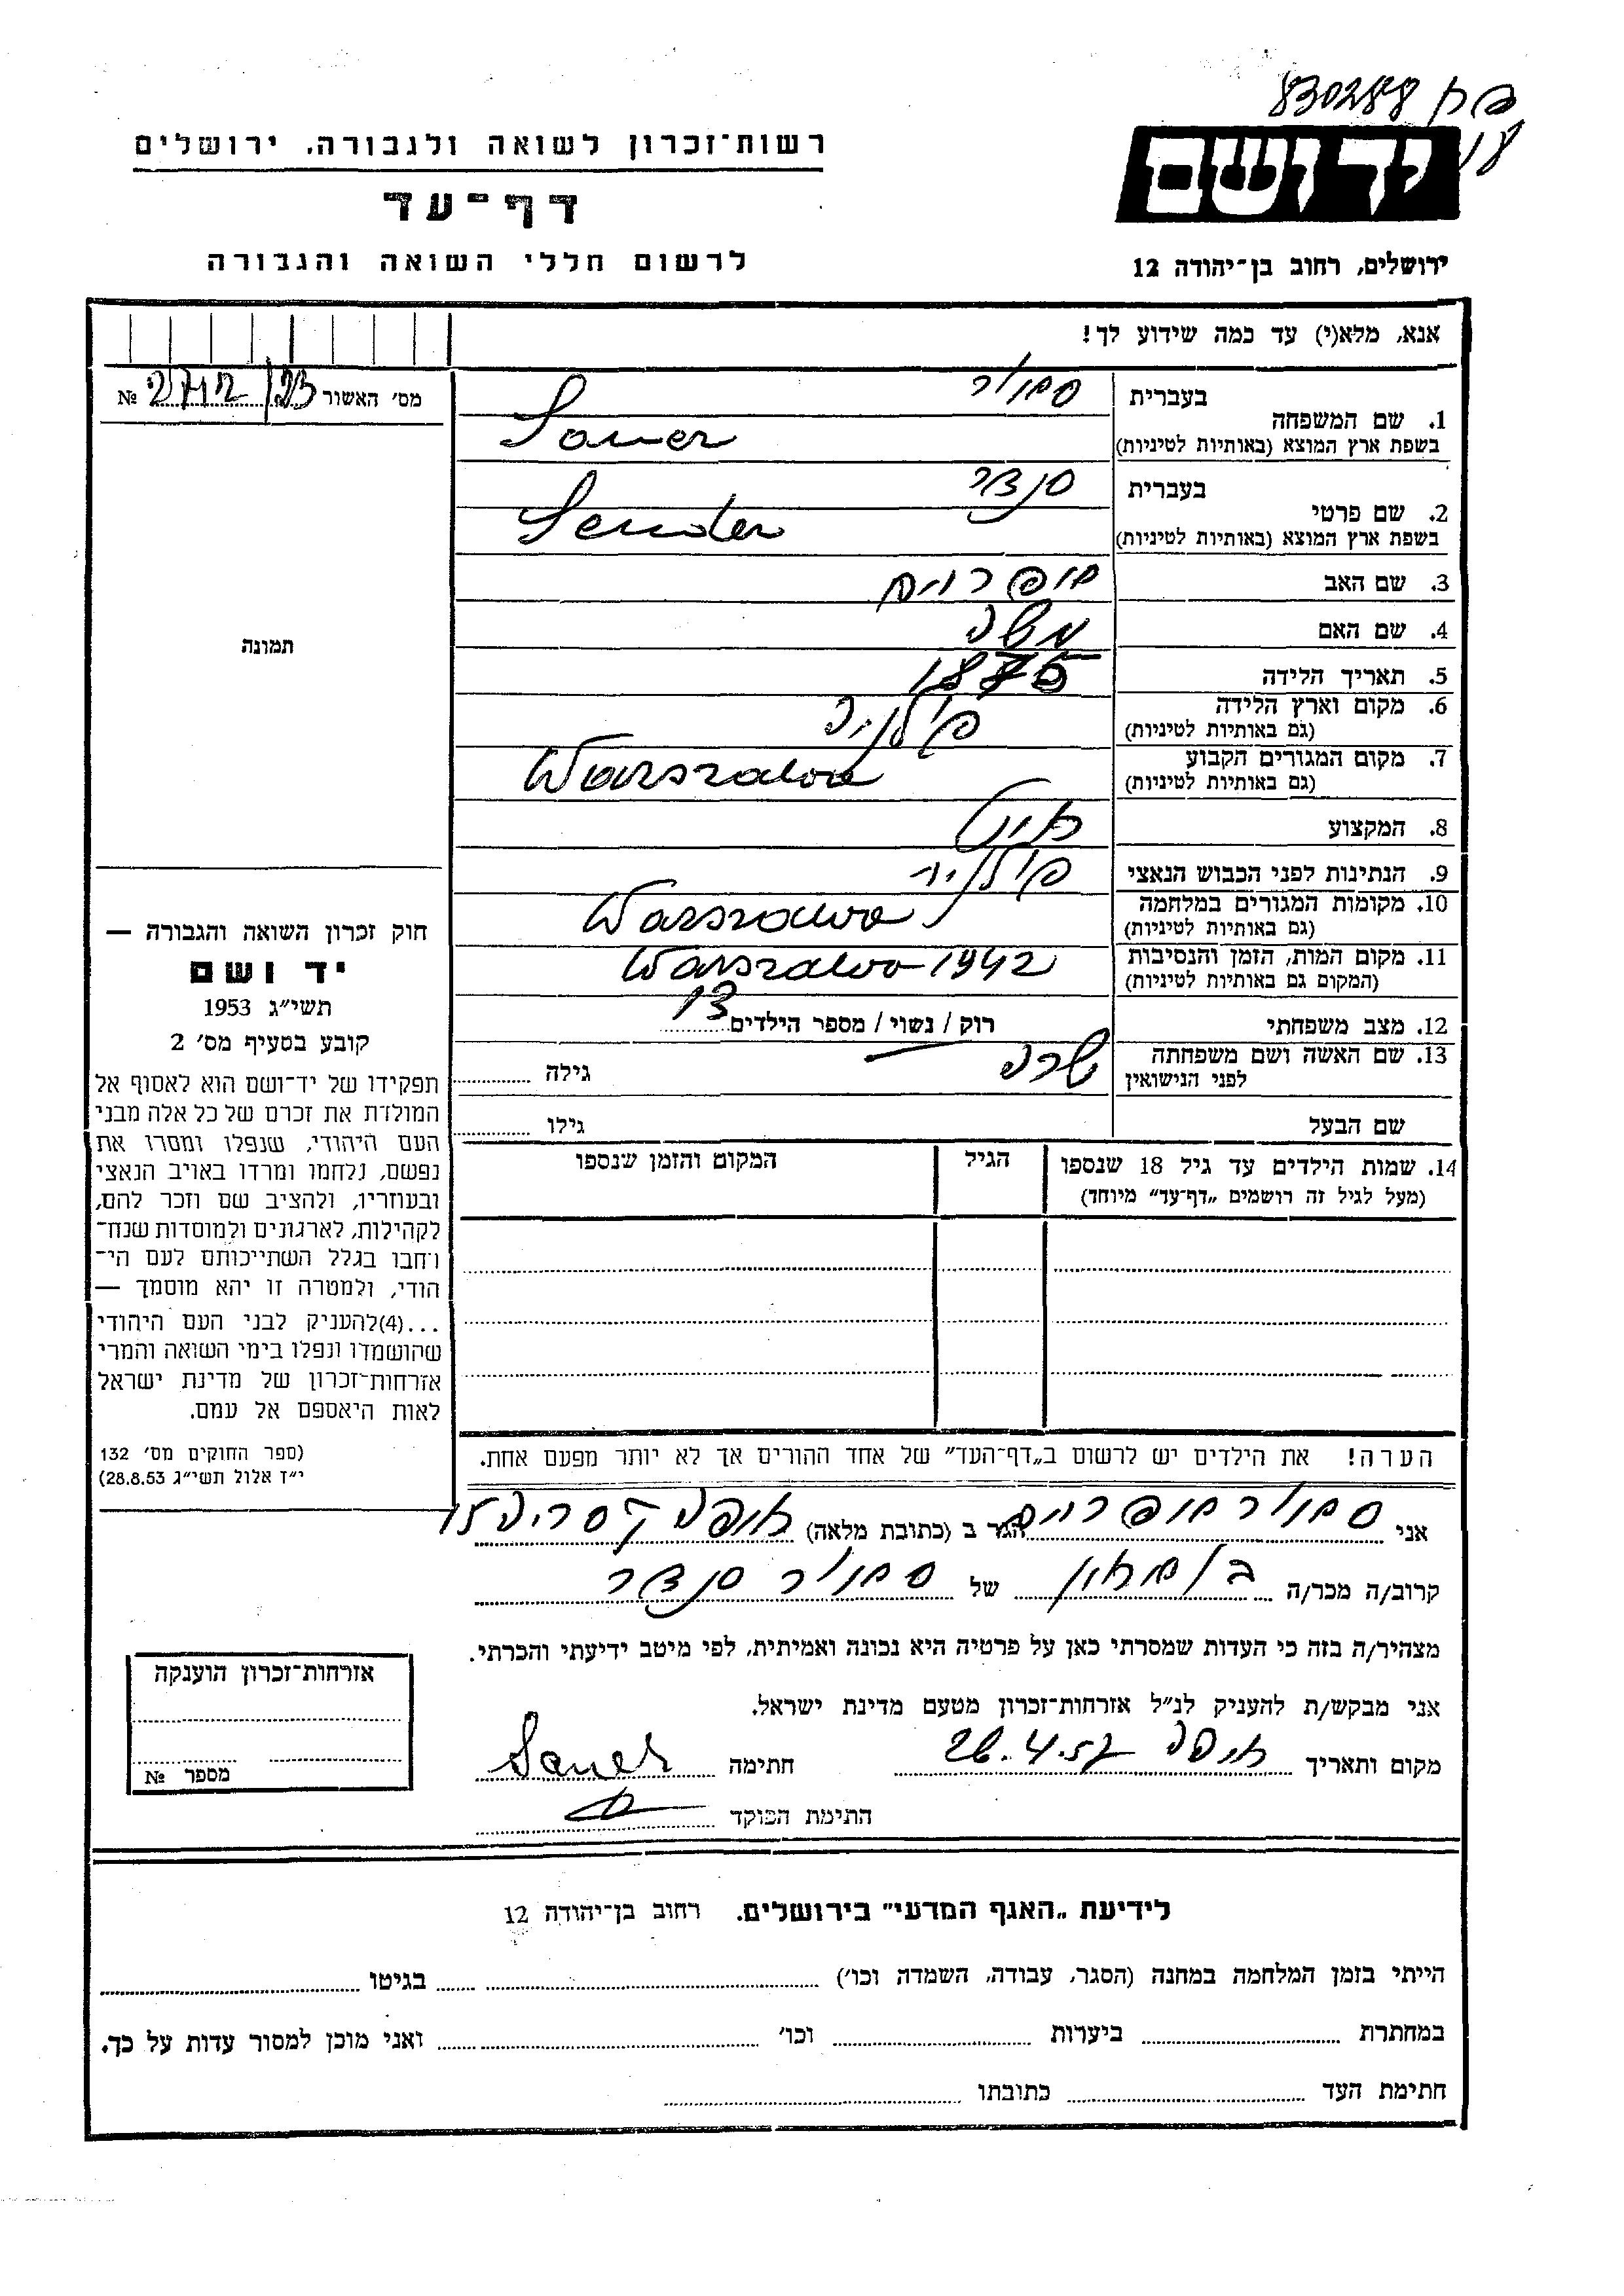 830288
יד ושם
רשות־זכרון לשואה ולגבורה, ירושלים
דף־עד
לרשום חללי השואה והגבורה
ירושלים, רחוב בן־יהודה 12
אנא, מלא(י) עד כמה שידוע לך!
מס׳ האשור №
1. שם המשפחה
בעברית
בשפת ארץ המוצא (באותיות לטיניות)
Sauer
2. שם פרטי
בעברית סנדר
בשפת ארץ המוצא (באותיות לטיניות)
Sender
3. שם האב אפרים
4. שם האם משה
5. תאריך הלידה 1875
6. מקום וארץ הלידה פולניה
(גם באותיות לטיניות)
7. מקום המגורים הקבוע Warszawa
(גם באותיות לטיניות)
8. המקצוע
9. הנתינות לפני הכבוש הנאצי
10. מקומות המגורים במלחמה Warszawa
(גם באותיות לטיניות)
11. מקום המות, הזמן והנסיבות Warszawa 1942
(המקום גם באותיות לטיניות)
12. מצב משפחתי רוק / נשוי / מספר הילדים 13
13. שם האשה ושם משפחתה שרה גילה
לפני הנישואין
שם הבעל גילו
14. שמות הילדים עד גיל 18 שנספו הגיל המקום והזמן שנספו
(מעל לגיל זה רושמים „דף־עד״ מיוחד)
הערה! את הילדים יש לרשום ב„דף־העד״ של אחד ההורים אך לא יותר מפעם אחת.
תמונה
חוק זכרון השואה והגבורה —
יד ושם
תשי״ג 1953
קובע בסעיף מס׳ 2
תפקידו של יד־ושם הוא לאסוף אל
המולדת את זכרם של כל אלה מבני
העם היהודי, שנפלו ומסרו את
נפשם, נלחמו ומרדו באויב הנאצי
ובעוזריו, ולהציב שם וזכר להם,
לקהילות, לארגונים ולמוסדות שנח־
רחבו בגלל השתייכותם לעם הי־
הודי, ולמטרה זו יהא מוסמך —
...(4) להעניק לבני העם היהודי
שהושמדו ונפלו בימי השואה והמרי
אזרחות־זכרון של מדינת ישראל
לאות היאספם אל עמם.
(ספר החוקים מס׳ 132
י״ז אלול תשי״ג 28.8.53)
אני הגר ב (כתובת מלאה)
קרוב/ה מכר/ה של סנדר
מצהיר/ה בזה כי העדות שמסרתי כאן על פרטיה היא נכונה ואמיתית, לפי מיטב ידיעתי והכרתי.
אני מבקש/ת להעניק לנ״ל אזרחות־זכרון מטעם מדינת ישראל.
מקום ותאריך חיפה 26.4.57 חתימה Sauer
חתימת הפוקד
אזרחות־זכרון הוענקה
מספר №
לידיעת „האגף המדעי״ בירושלים, רחוב בן־יהודה 12
הייתי בזמן המלחמה במחנה (הסגר, עבודה, השמדה וכו׳) בגיטו
במחתרת ביערות וכו׳ ואני מוכן למסור עדות על כך.
חתימת העד כתובתו